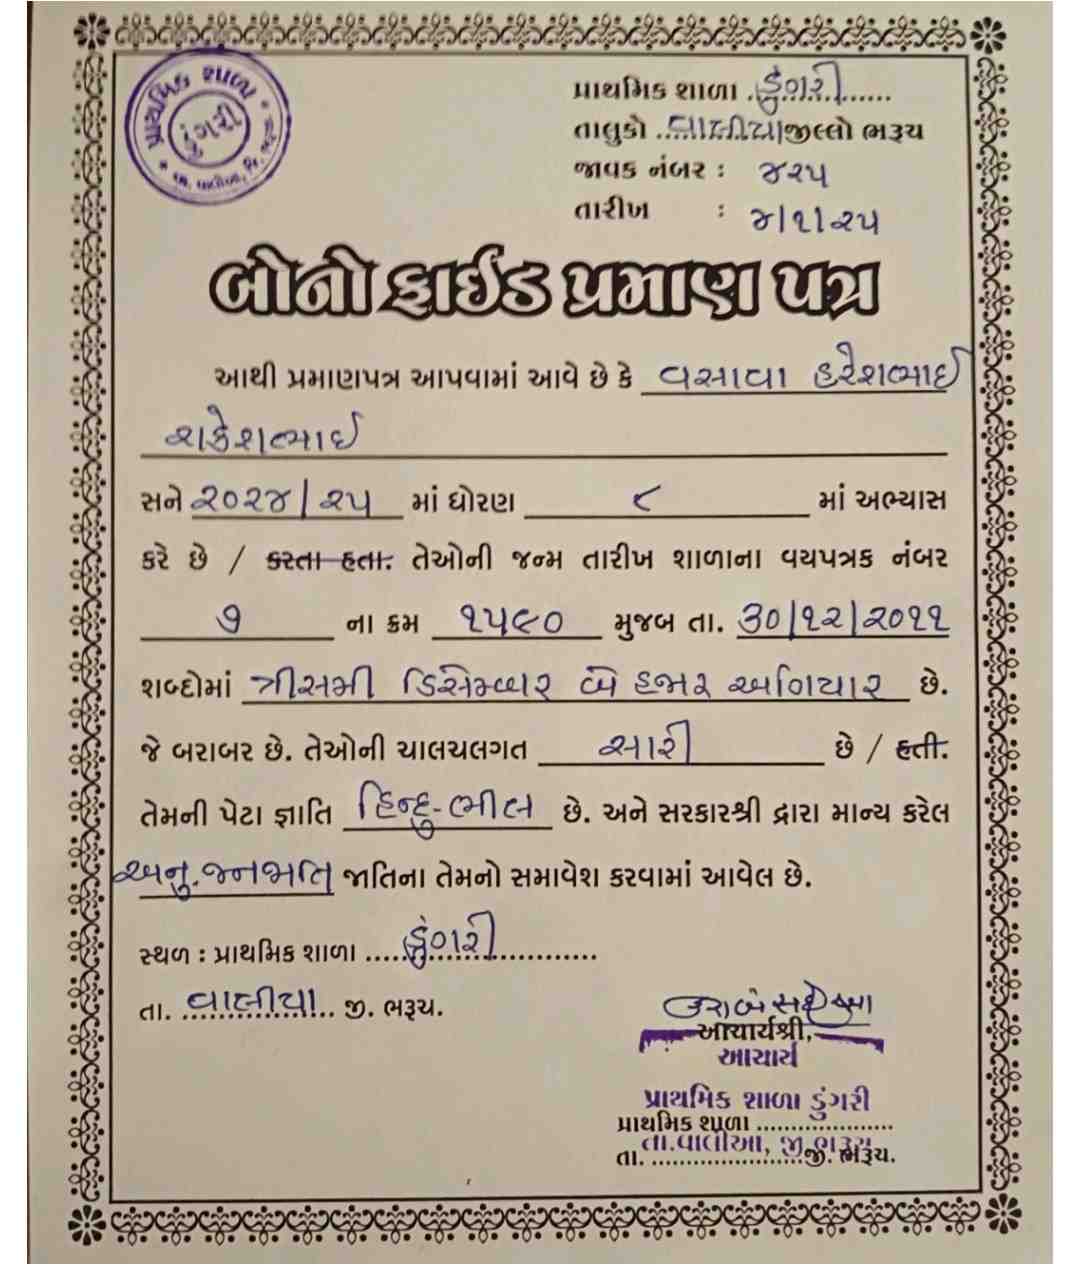 પ્રાથમિક શાળા
ડુંગરી
તા. વાલીઆ, જિ. ભરૂચ
પ્રાથમિક શાળા .ડુંગરી......
તાલુકો ..વાલીયા જીલ્લો ભરૂચ
જાવક નંબર : ૪૨૫
તારીખ : ૪/૧/૨૫
બોનોફાઈડ પ્રમાણ પત્ર
આથી પ્રમાણપત્ર આપવામાં આવે છે કે વસાવા હરેશભાઈ
રાકેશભાઈ
સને ૨૦૨૪/૨૫ માં ધોરણ ૮ માં અભ્યાસ
કરે છે / કરતા હતા. તેઓની જન્મ તારીખ શાળાના વયપત્રક નંબર
૭ ના ક્રમ ૧૫૯૦ મુજબ તા. ૩૦/૧૨/૨૦૧૧
શબ્દોમાં ત્રીસમી ડિસેમ્બર બે હજાર અગિયાર છે.
જે બરાબર છે. તેઓની ચાલચલગત સારી છે / હતી.
તેમની પેટા જ્ઞાતિ હિન્દુ-ભીલ છે. અને સરકારશ્રી દ્વારા માન્ય કરેલ
અનુ.જનજાતિ જાતિના તેમનો સમાવેશ કરવામાં આવેલ છે.
સ્થળ : પ્રાથમિક શાળા ....ડુંગરી..........
તા. .વાલીયા.. જી. ભરૂચ.
આચાર્યશ્રી,
આચાર્ય
પ્રાથમિક શાળા ડુંગરી
પ્રાથમિક શાળા ....................
તા.વાલીઆ, જી.ભરૂચ
તા. ......................જી. ભરૂચ.